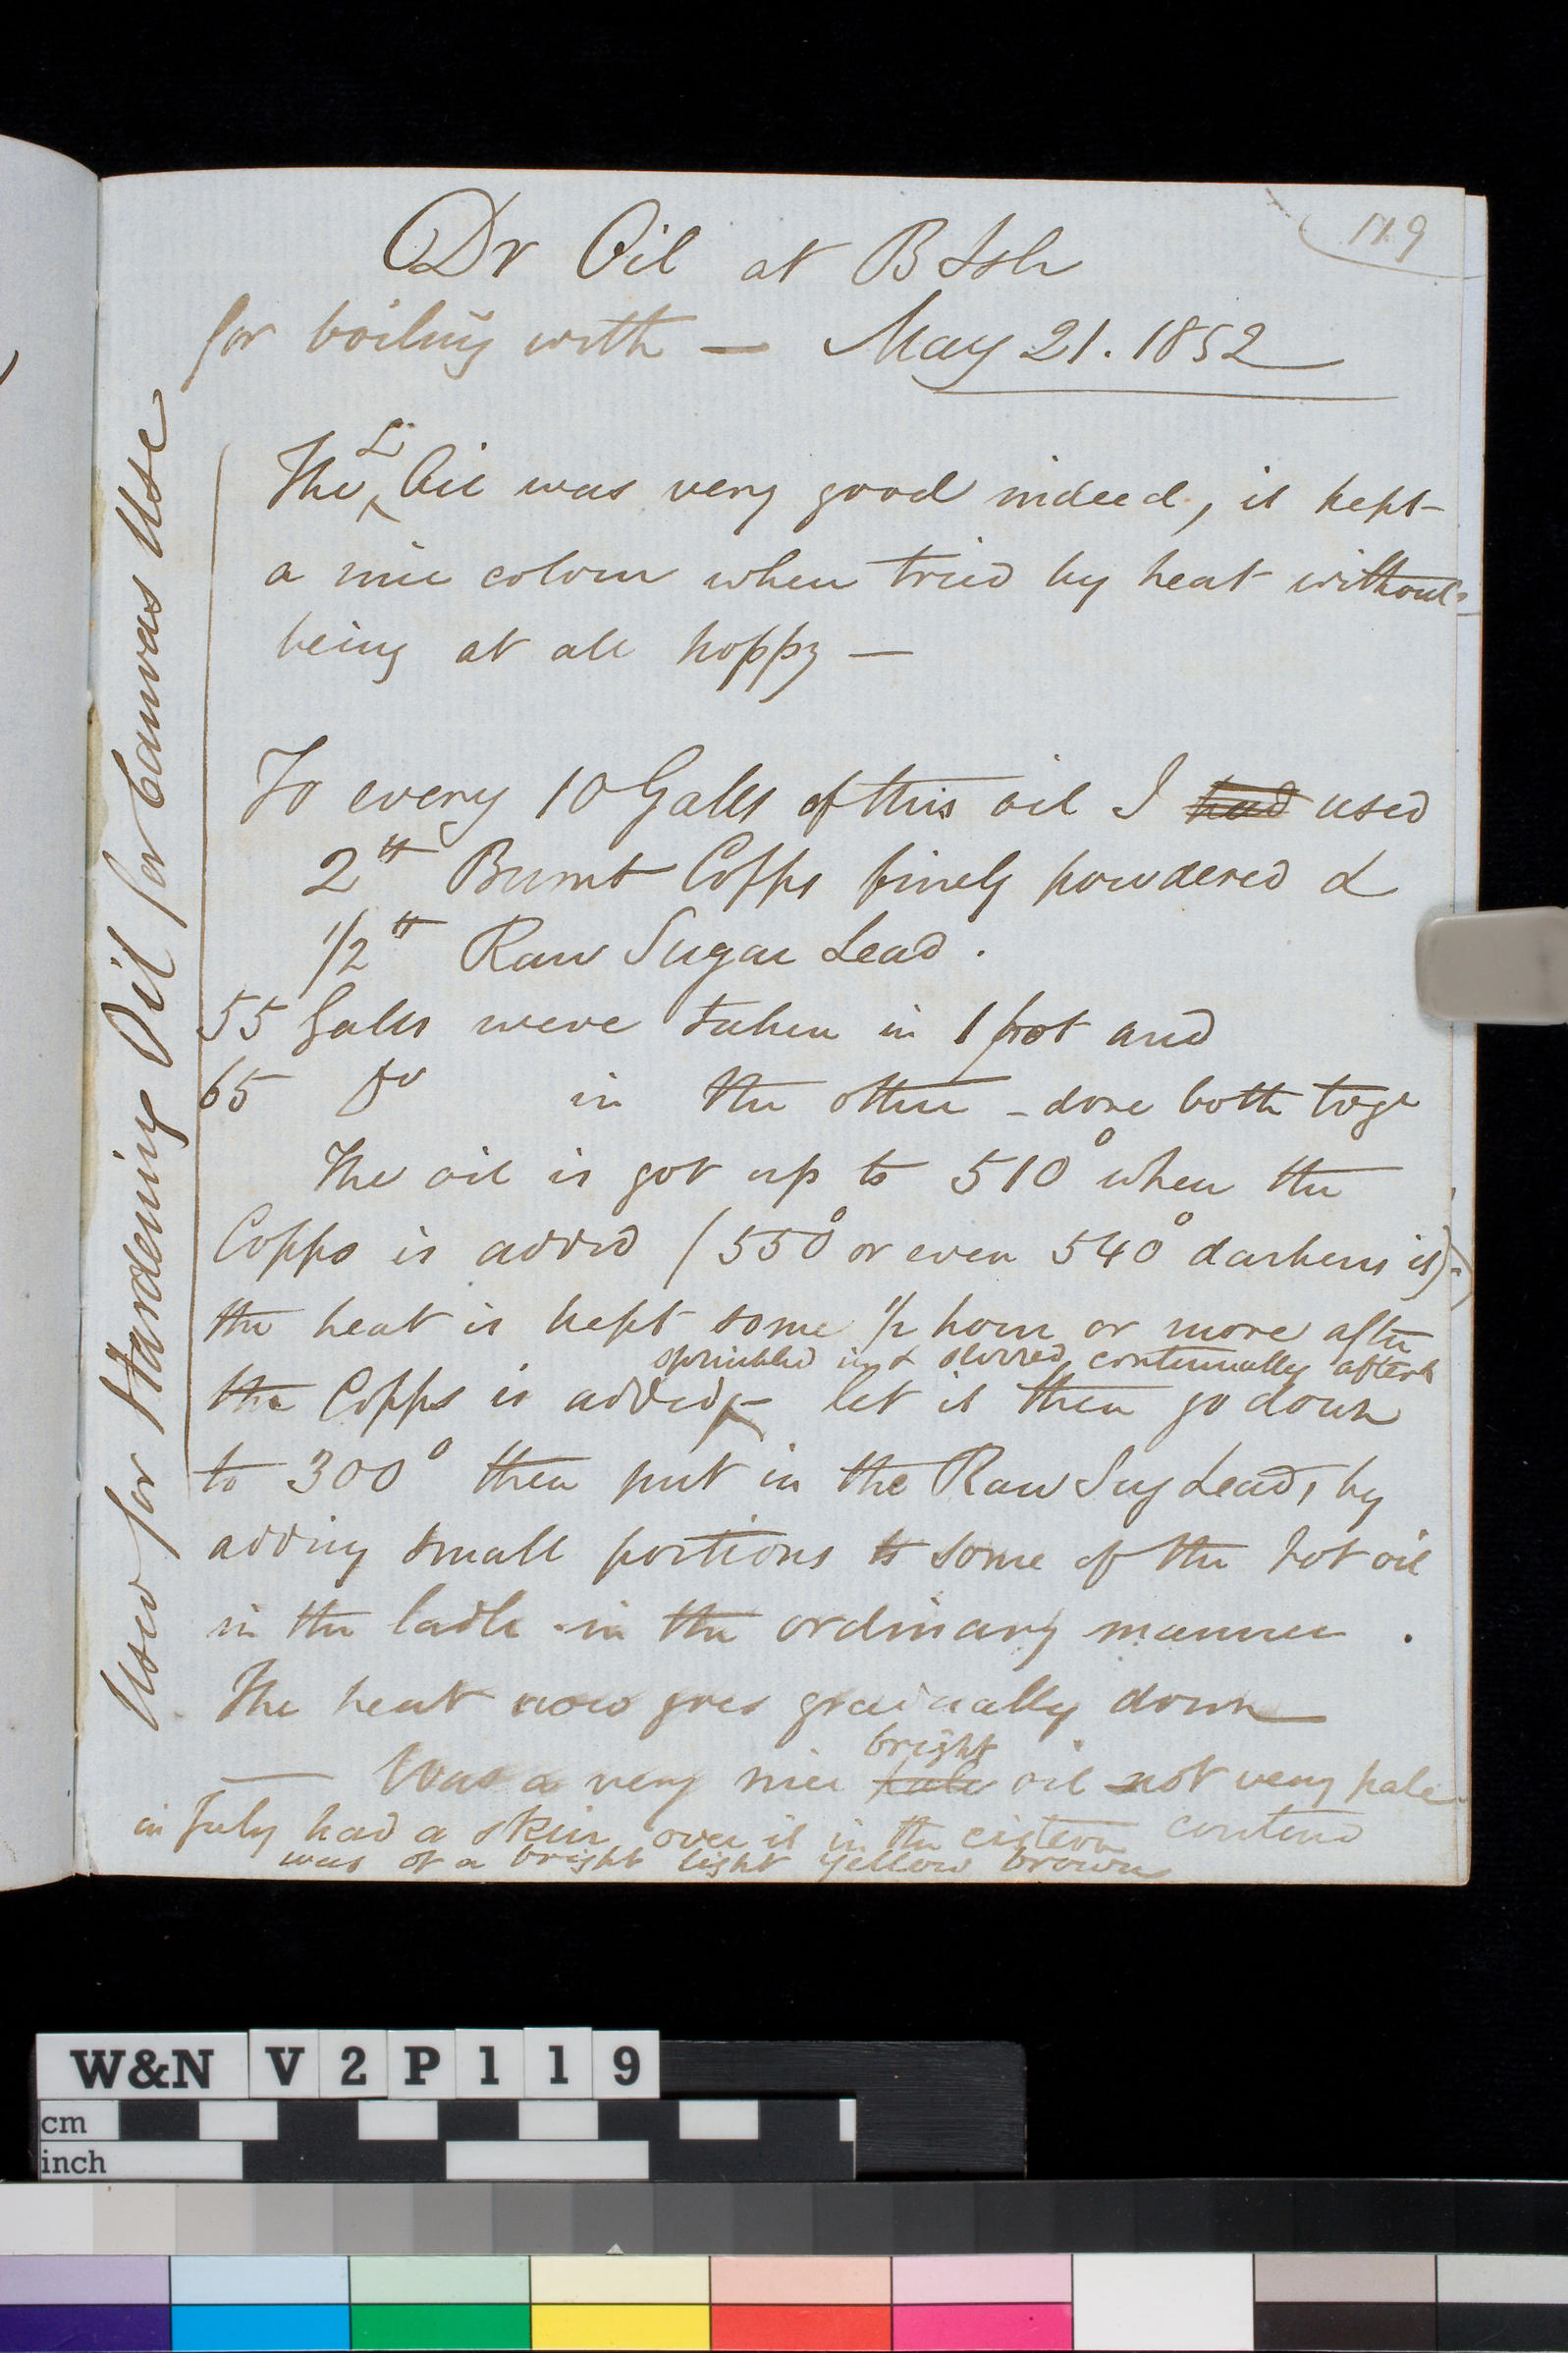 119
Dr Oil at B Ish
for boiling with — May 21. 1852
L
The Oil was very good indeed, it kept
a nice colour when tried by heat without
being at all hoppy —
To every 10 Galls of this oil I had used
2 lb Burnt Copps finely powdered &
1/2 lb Raw Sugar Lead.
55 Galls were taken in 1 pot and
65 Do in the other - done both togr
The oil is got up to 510° when the
Copps is added (550° or even 540° darkens it) -
the heat is kept some 1/2 hour or more after
sprinkled in & stirred continually after
the Copps is added - let it then go down
to 300° then put in the Raw Sug Lead, by
adding small portions to some of the hot oil
in the ladle - in the ordinary manner.
The heat now goes gradually down
bright
— Was a very nice pale oil not very pale
in July had a skin over it in the cistern contend
was of a bright light yellow brown
Used for Hardening Oil for Canvas Use
W&N V2P119
cm
inch